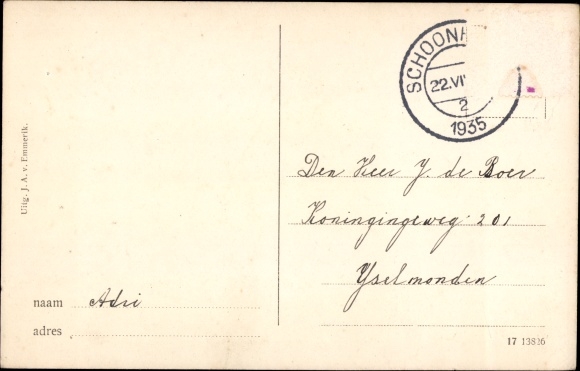 SCHOONH
22.VI
2
1935
Uitg. J. A. v. Emmerik.
Den Heer J. de Boer
Koninginneweg 201
Yselmonden
naam Adri
adres
17 13826